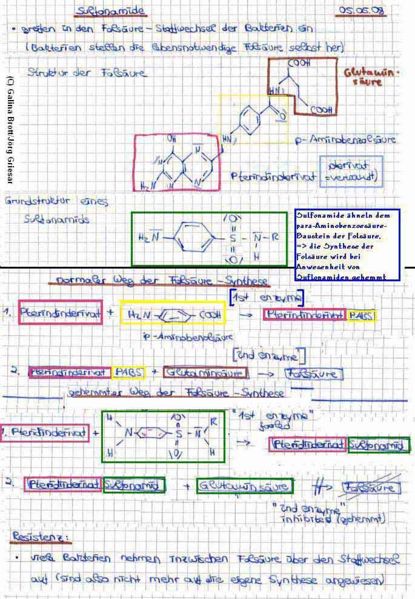 Sulfonamide 05.05.09
• greifen in den Folsäure-Stoffwechsel der Bakterien ein
(Bakterien stellen die lebensnotwendige Folsäure selbst her)
Struktur der Folsäure
COOH
Glutamin-
säure
COOH
HN
O
p-Aminobenzolsäure
OH
N
N
N
N
H₂N
Pterindinderivat
(derivat
=verwandt)
Grundstruktur eines
Sulfonamids
H₂N
S
N-R
H
Sulfonamide ähneln dem
para-Aminobenzoesäure-
Baustein der Folsäure,
=> die Synthese der
Folsäure wird bei
Anwesenheit von
Suflonamiden gehemmt
(C) Gallina Brott/Jörg Griesar
normaler Weg der Folsäure-Synthese
[1st enzyme]
1. Pterindinderivat + H₂N COOH → Pterindinderivat PABS
p-Aminobenzolsäure
[2nd enzyme]
2. Pterindinderivat PABS + Glutaminsäure → Folsäure
gehemmter Weg der Folsäure-Synthese
"1st enzyme"
fooled
1. Pterindinderivat + H N S N R H → Pterindinderivat Sulfonamid
2. Pterindinderivat Sulfonamid + Glutaminsäure Folsäure
"2nd enzyme"
inhibited (gehemmt)
Resistenz:
• viele Bakterien nehmen inzwischen Folsäure über den Stoffwechsel
auf (sind also nicht mehr auf die eigene Synthese angewiesen)